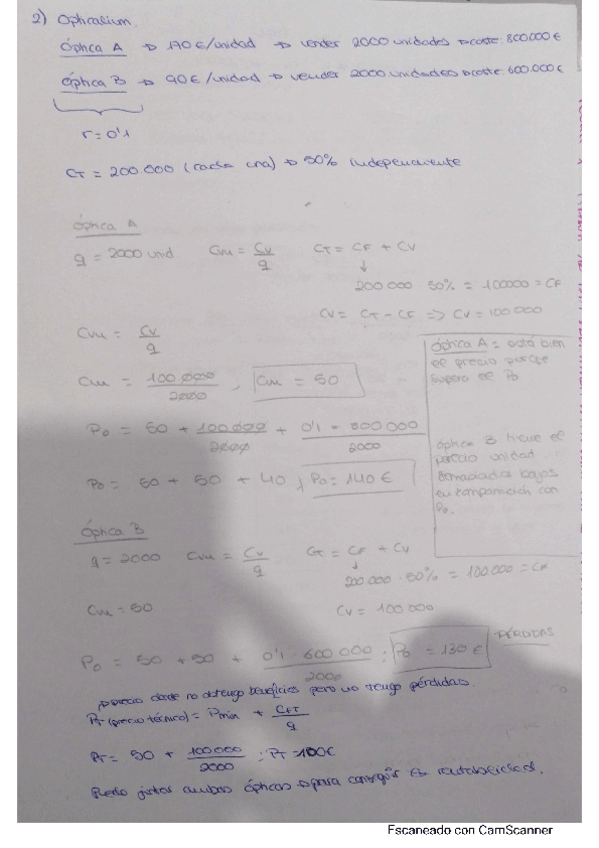 2) Opticalium.
Óptica A → 170 €/unidad → vender 2000 unidades → coste: 800.000 €
Óptica B → 90 €/unidad → vender 2000 unidades → coste: 600.000 €
r = 0'1
CT = 200.000 (cada una) → 50% independiente
Óptica A
q = 2000 unid Cvu = Cv/q CT = CF + CV
200.000 · 50% = 100000 = CF
CV = CT - CF => CV = 100.000
Cvu = Cv/q
Cvu = 100.000/2000, Cvu = 50
Óptica A = está bien
el precio porque
supera el Po
Po = 50 + 100.000/2000 + 0'1 · 800.000/2000
Po = 50 + 50 + 40; Po = 140 €
óptica B tiene el
precio unidad
demasiado bajos
en comparación con
Po.
Óptica B
q = 2000 Cvu = Cv/q CT = CF + CV
200.000 · 50% = 100.000 = CF
Cvu = 50 CV = 100.000
Po = 50 + 50 + 0'1 · 600.000/2000; Po = 130 € PÉRDIDAS
precio donde no obtengo beneficios pero no tengo pérdidas.
PT (precio técnico) = Pmin + CFT/q
PT = 50 + 100.000/2000; PT = 100€
ambas ópticas → para conseguir
Escaneado con CamScanner